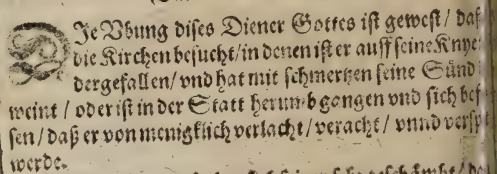 DJe Vbung dises Diener Gottes ist gewest / daß
die Kirchen besucht / in denen ist er auff seine Knye
dergefallen / vnd hat mit schmertzen seine Sünd
weint / oder ist in der Statt herumb gangen vnd sich bef
sen / daß er von menigklich verlacht / veracht / vnnd versp
werde.